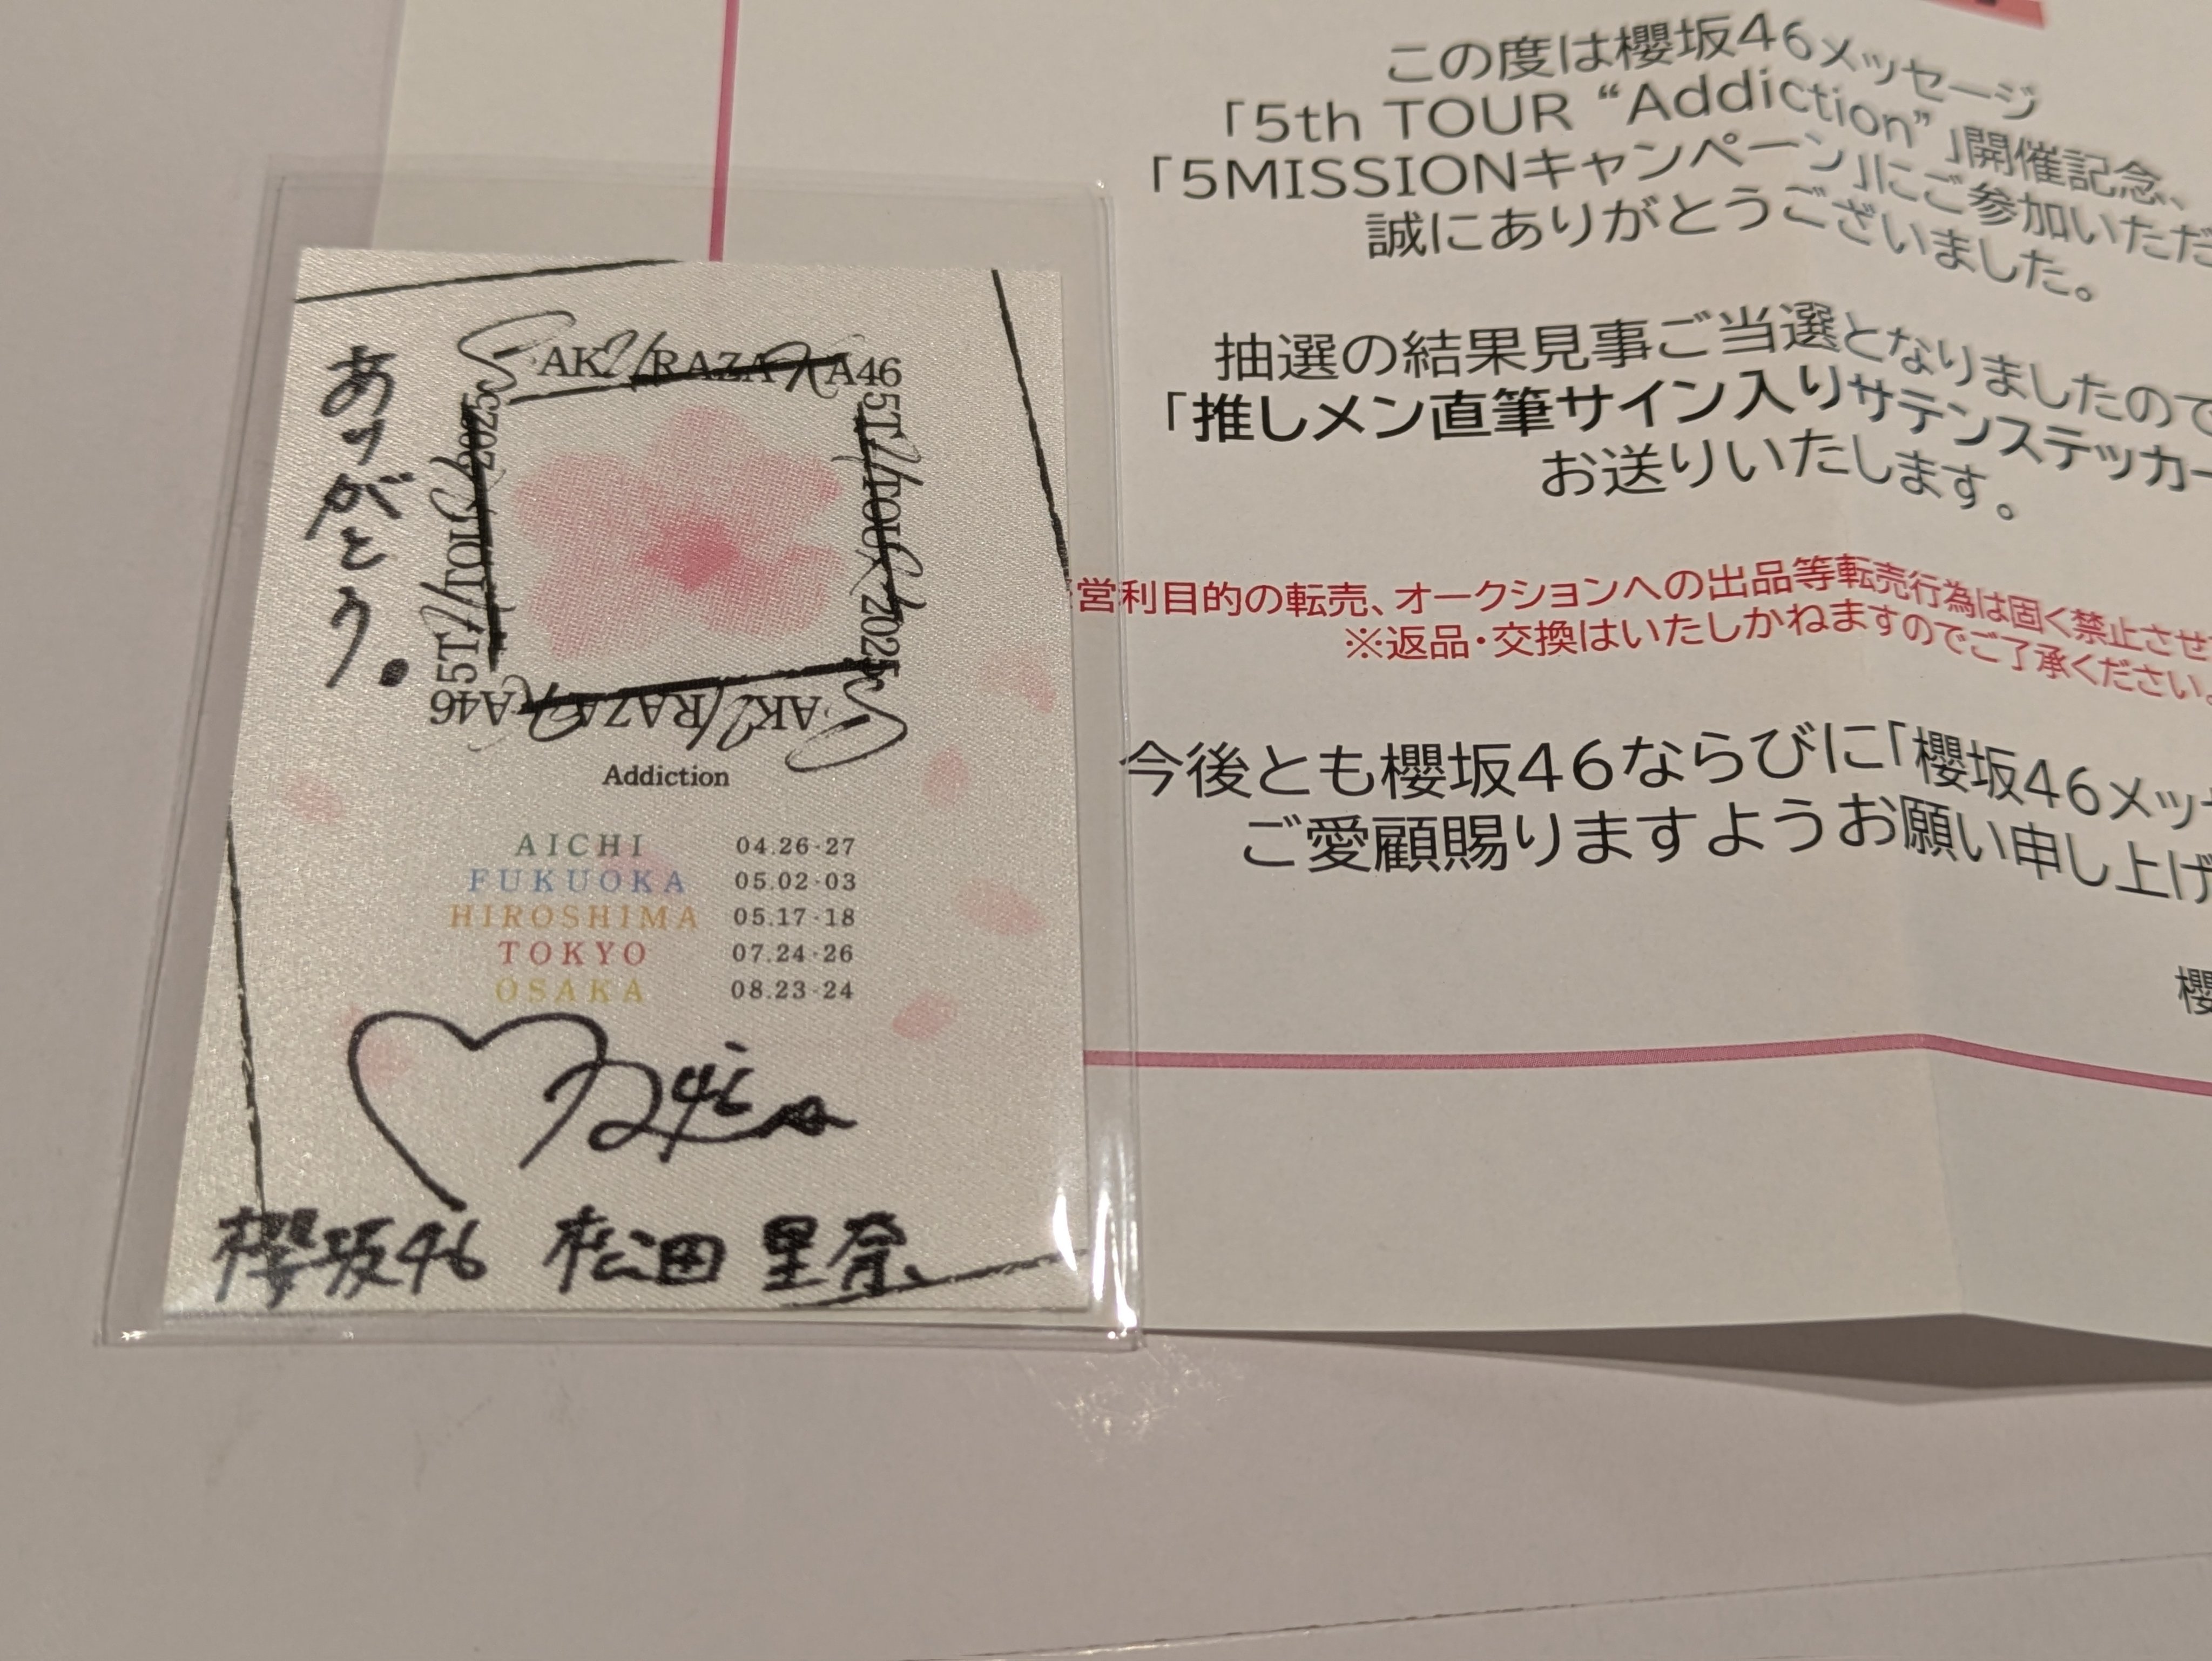 ありがとう。
SAKURAZAKA46
5TH TOUR 2025
5TH TOUR 2025
SAKURAZAKA46
Addiction
AICHI 04.26-27
FUKUOKA 05.02-03
HIROSHIMA 05.17-18
TOKYO 07.24-26
OSAKA 08.23-24
櫻坂46 松田 里奈
この度は櫻坂46メッセージ
「5th TOUR “Addiction”」開催記念、
「5MISSIONキャンペーン」にご参加いただ
誠にありがとうございました。
抽選の結果見事ご当選となりましたので
「推しメン直筆サイン入りサテンステッカー
お送りいたします。
営利目的の転売、オークションへの出品等転売行為は固く禁止させ
※返品・交換はいたしかねますのでご了承ください。
今後とも櫻坂46ならびに「櫻坂46メッセ
ご愛顧賜りますようお願い申し上げ
櫻